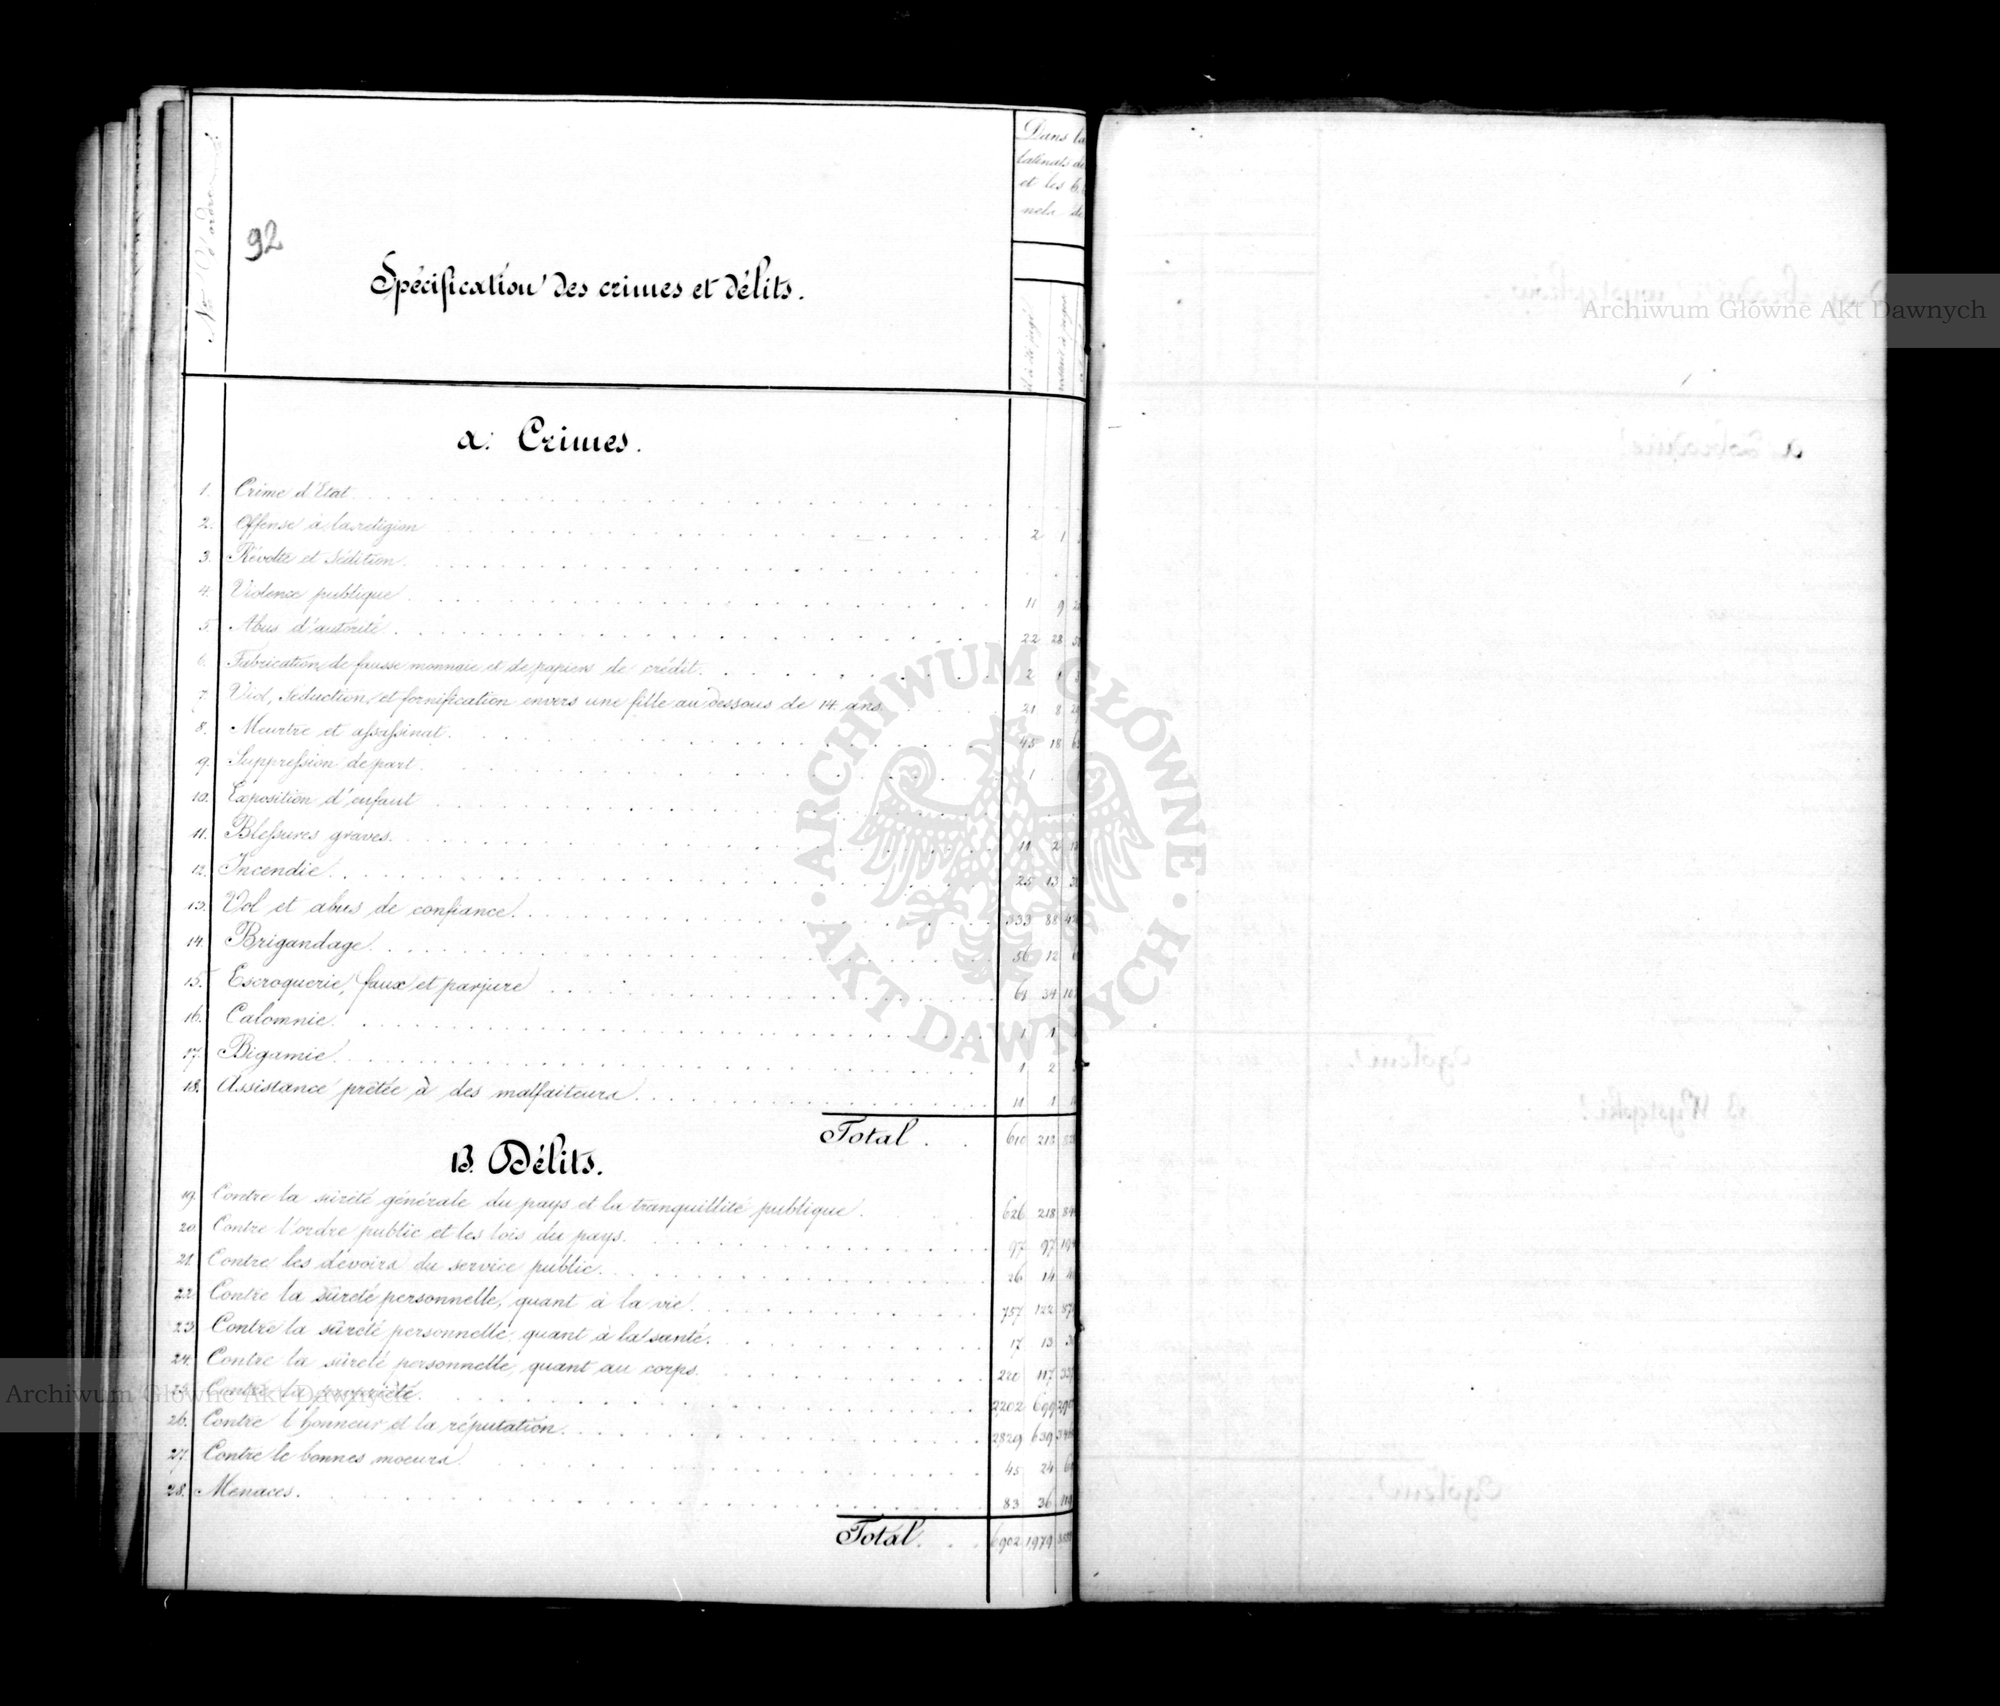 No d'ordre
92
Spécification des crimes et délits.
Dans la
latinats de
et les
nels de
il a été jugé
restait à juger
a. Crimes.
1. Crime d'Etat
2. Offense à la religion 2 1
3. Révolte et sédition
4. Violence publique 11 9 20
5. Abus d'autorité 22 28 50
6. Fabrication de fausse monnaie et de papiers de crédit. 2 1 3
7. Viol, séduction, et fornification envers une fille au dessous de 14 ans 21 8 29
8. Meurtre et assassinat. 45 18 63
9. Suppression de part. 1
10. Exposition d'enfant
11. Blessures graves. 11 2 13
12. Incendie. 25 13 38
13. Vol et abus de confiance. 333 88 42
14. Brigandage. 56 12 6
15. Escroquerie, faux et parjure 61 34 10
16. Calomnie. 1 1
17. Bigamie. 1 2
18. Assistance prêtée à des malfaiteurs. 11 1
Total. 610 213
B. Délits.
19. Contre la sûreté générale du pays et la tranquillité publique. 626 218 84
20. Contre l'ordre public et les lois du pays. 97 97 194
21. Contre les devoirs du service public. 26 14 4
22. Contre la sûreté personnelle, quant à la vie. 757 122 87
23. Contre la sûreté personnelle, quant à la santé. 17 13 30
24. Contre la sûreté personnelle, quant au corps. 220 117 337
25. Contre la propriété. 2202 699 290
26. Contre l'honneur et la réputation. 2829 639 346
27. Contre le bonnes moeurs. 45 24 6
28. Menaces. 83 36 119
Total. 6902 1979
Archiwum Główne Akt Dawnych
ARCHIWUM GŁÓWNE · AKT DAWNYCH ·
Archiwum Główne Akt Dawnych